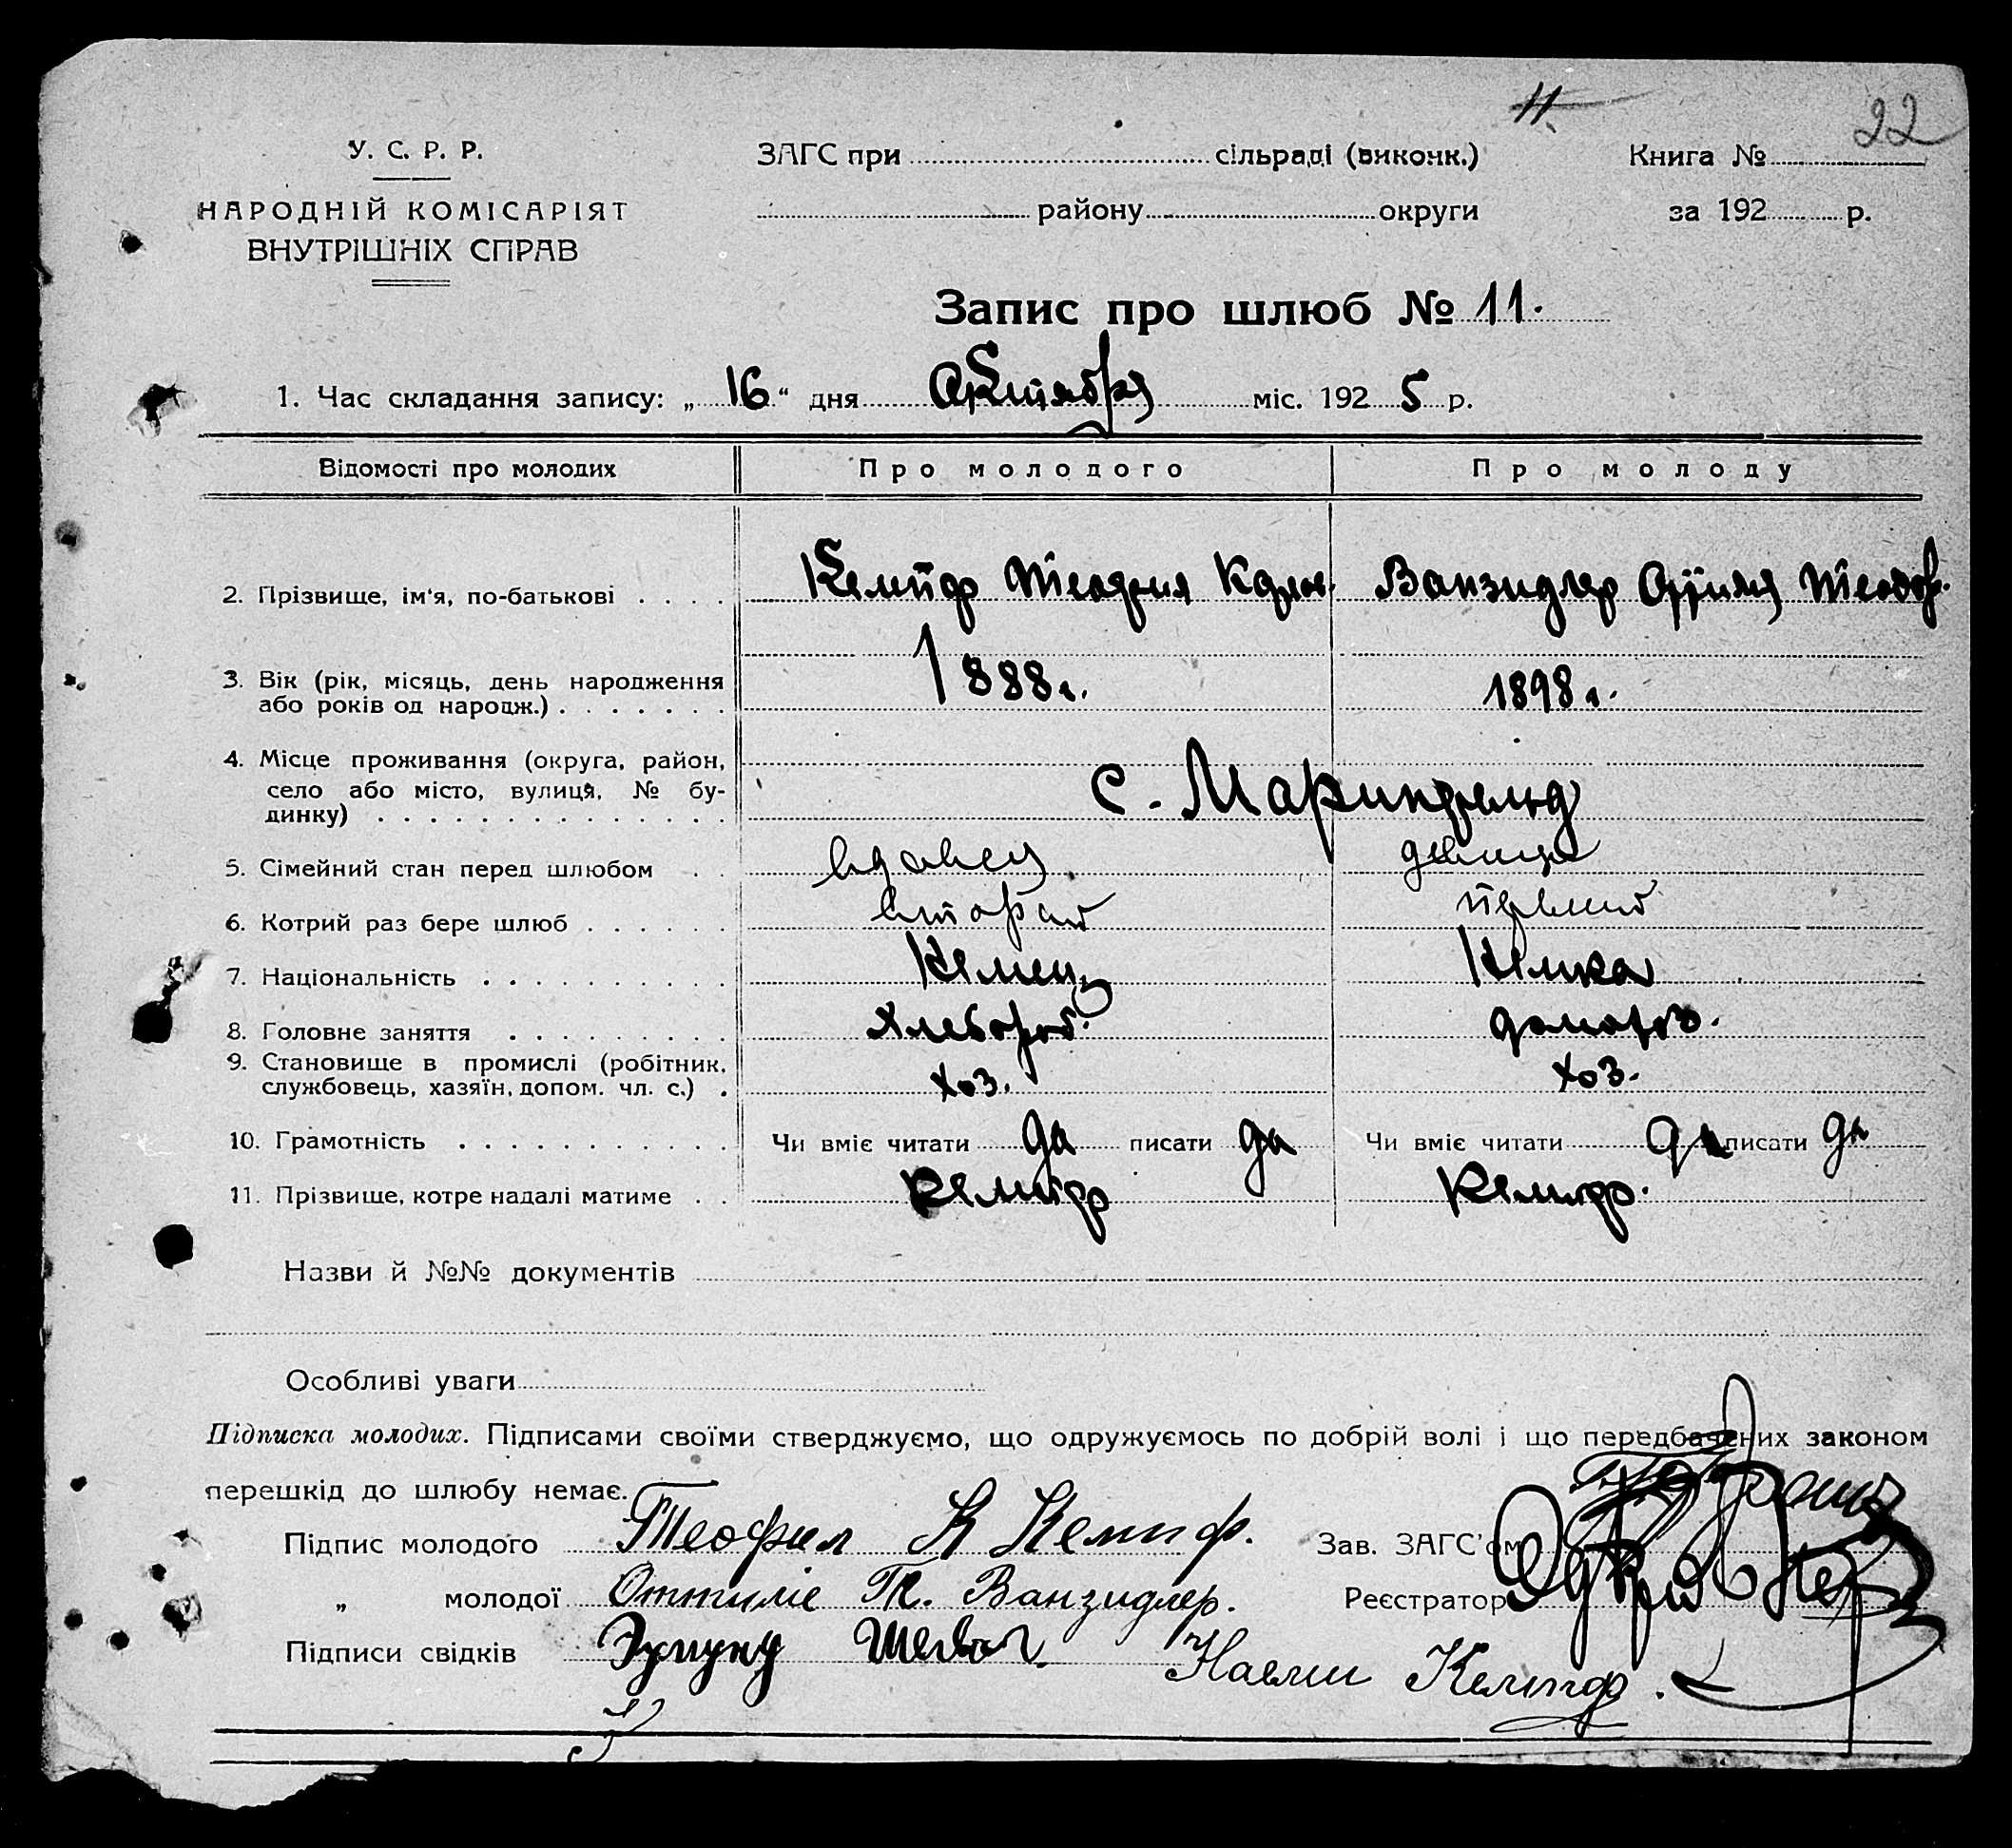 11.
22
У. С. Р. Р.
ЗАГС при сільраді (виконк.)
Книга №
НАРОДНІЙ КОМІСАРІЯТ
ВНУТРІШНІХ СПРАВ
району округи
за 192 р.
Запис про шлюб № 11.
1. Час складання запису: „ 16 “ дня Октября міс. 192 5 р.
Відомості про молодих Про молодого Про молоду
2. Прізвище, ім'я, по-батькові . . . . Кемпф Ванзидлер Теодор.
3. Вік (рік, місяць, день народження
або років од народж.) . . . . . . . 1888 г. 1898 г.
4. Місце проживання (округа, район,
село або місто, вулиця, № бу-
динку) . . . . . . . . . . . . . . с. Мариинфельд
5. Сімейний стан перед шлюбом . . вдовец девица
6. Котрий раз бере шлюб . . . . . . второй первый
7. Національність . . . . . . . . . . Немец Немка
8. Головне заняття . . . . . . . . . Хлебороб. домохоз.
9. Становище в промислі (робітник,
службовець, хазяїн, допом. чл. с.) . хоз. хоз.
10. Грамотність . . . . . . . . . . . Чи вміє читати да писати да Чи вміє читати да писати да
11. Прізвище, котре надалі матиме . . Кемпф Кемпф.
Назви й №№ документів
Особливі уваги
Підписка молодих. Підписами своїми стверджуємо, що одружуємось по добрій волі і що передбачених законом
перешкід до шлюбу немає.
Підпис молодого Теофил К Кемпф. Зав. ЗАГС'ом
„ молодої Оттиліе Т. Ванзидлер. Реєстратор
Підписи свідків Кемпф.